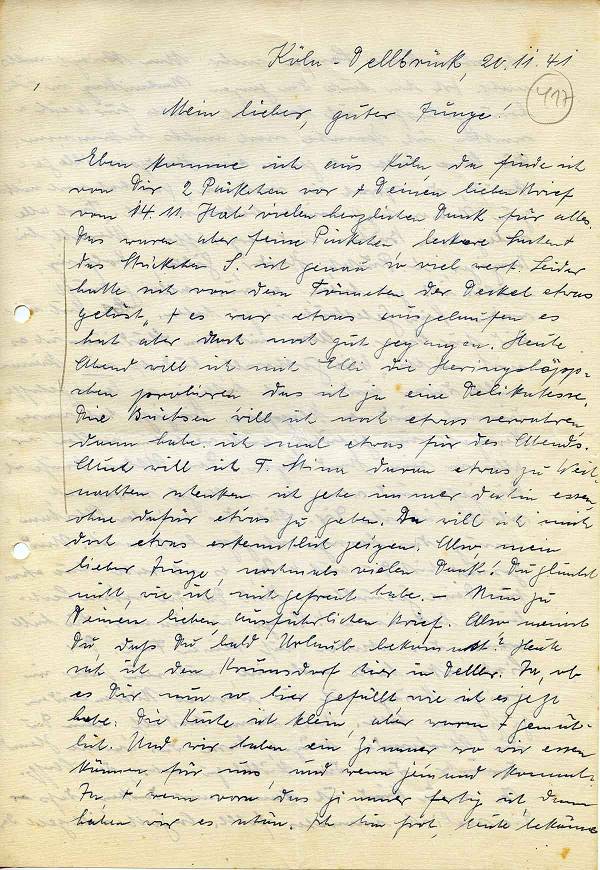 Köln-Dellbrück, 20.11.41
417
Mein lieber, guter Junge!
Eben komme ich aus Köln, da finde ich
von Dir 2 Päckchen vor + Deinen lieben Brief
vom 14.11. Hab' vielen herzlichen Dank für alles.
Das waren aber feine Päckchen leckere Sachen +
das Stückchen S. ist genau so viel wert. Leider
hatte sich von dem Tomaten der Deckel etwas
gelöst, + es war etwas ausgelaufen es
hat aber doch noch gut gegangen. Heute
Abend will ich mit Elli die Heringshäpp-
chen probieren das ist ja eine Delikatesse.
Die Büchsen will ich noch etwas verwahren,
dann habe ich mal etwas für des Abends.
Auch will ich T. Stina davon etwas zu Weih-
nachten schenken ich gehe immer dahin essen,
ohne dafür etwas zu geben. Da will ich mich
doch etwas erkenntlich zeigen. Also, mein
lieber Junge, nochmals vielen Dank! Du glaubst
nicht, wie ich mich gefreut habe. — Nun zu
Deinen lieben, ausführlichen Brief. Also meinst
Du, daß Du bald Urlaub bekommst? Heute
ist der Krumsdorf hier in Dellbr. Ja, ob
es Dir nun so hier gefällt wie ich es jetzt
habe. Die Küche ist klein, aber warm + gemüt-
lich. Und wir haben ein Zimmer wo wir essen
können für uns, und wenn jemand kommt.
Ja, + wenn vorn das Zimmer fertig ist, dann
haben wir es schön. Ich bin froh, heute bekäme